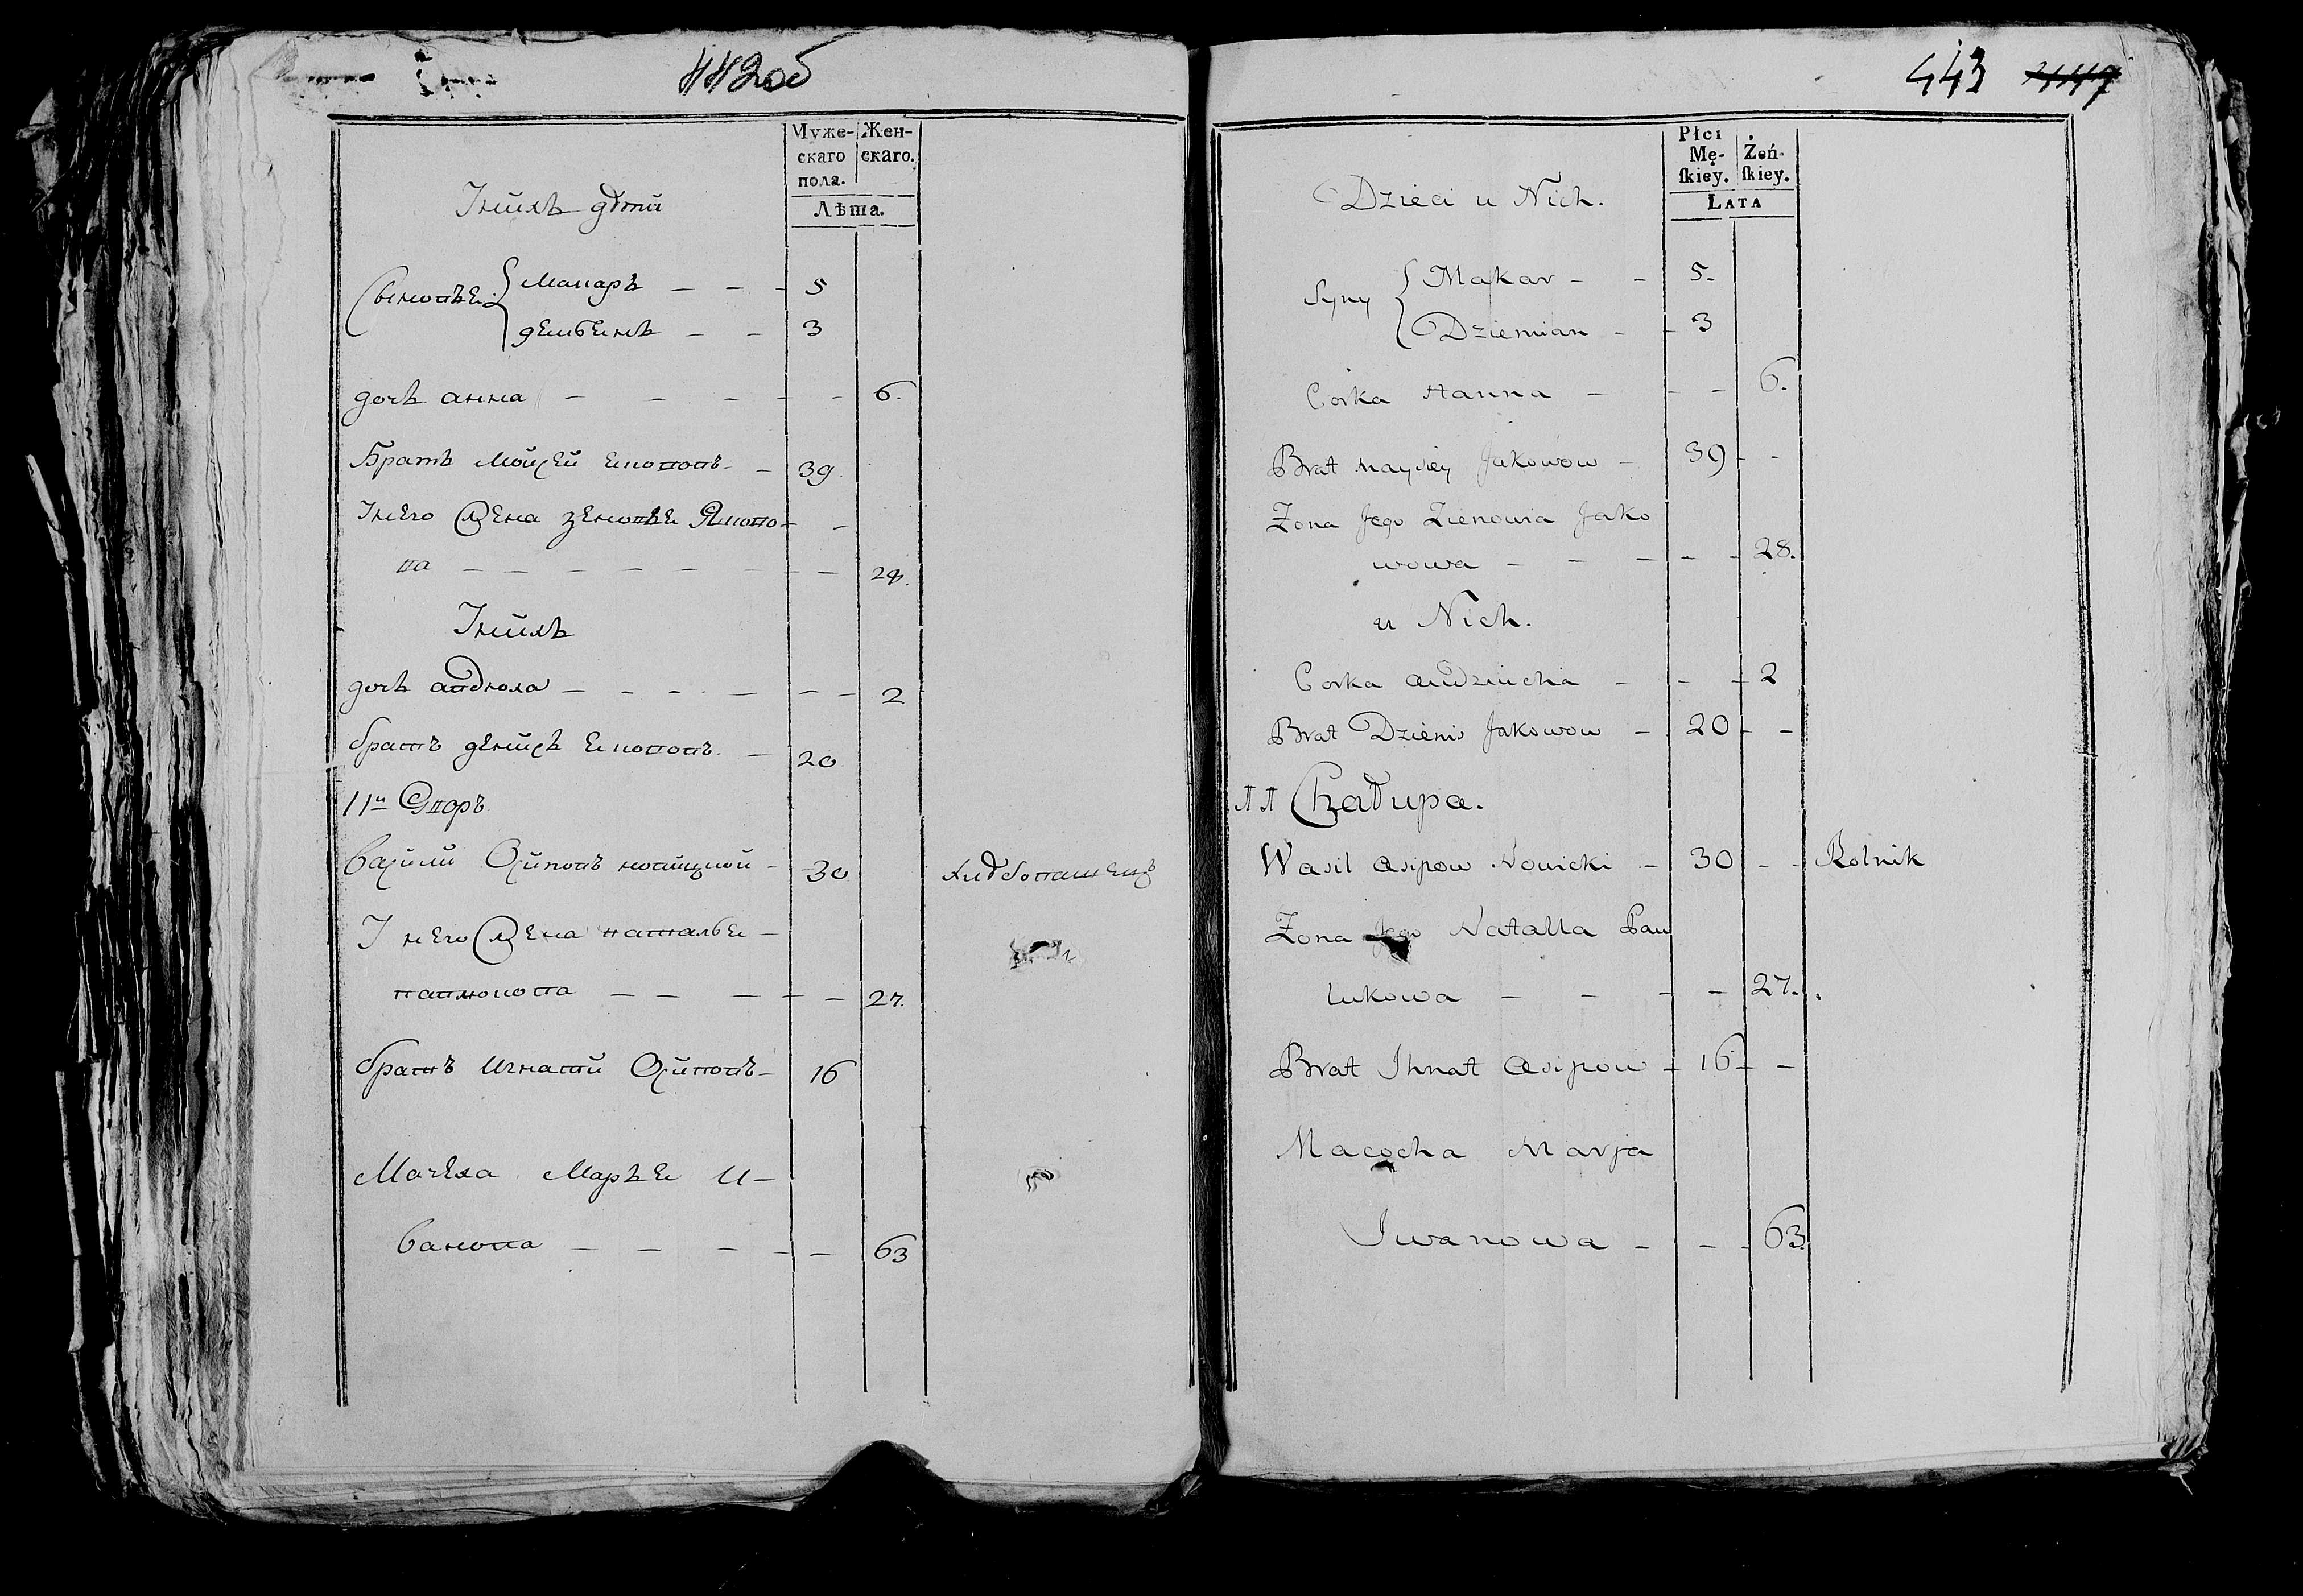 442об
Муже-
скаго
пола.
Жен-
скаго.
Лѣта.
Інихъ дѣти
Сыновъя Макаръ — — - 5
демьянъ — — 3
дочь анна — — — — - 6.
Братъ мойсей якововъ — 39
Інего жена зеновъя Яково-
ва — — — — — — — 28.
Інихъ
дочь авдюха — — — — — — 2
братъ денисъ якововъ — 20
11й Дворъ
Василий Осиповъ новицкой - 30 хлѣбопашецъ
Інего жена наталья —
павлюкова — — — — — 27.
братъ игнатий Осиповъ — 16
Мачеха Маръя И-
ванова — — — — — 63
443 447
Płci
Mę-
ſkiey.
Żeń-
ſkiey.
LATA
Dzieci u Nich.
Syny Makar - - 5-
Dziemian - - 3
Corka Hanna - - - 6.
Brat Maysiey Jakowow - 39 - -
Zona Jego Zienowia Jako
wowa - - - - - 28.
u Nich.
Corka Audziucha - - - 2
Brat Dzienis Jakowow - 20 - -
11 Chatupa.
Wasil Asipow Nowicki - 30 - - Rolnik
Zona Jego Natalla Pau
lukowa - - - - 27.
Brat Ihnat Asipow - 16 - -
Macocha Marja
Iwanowa - - - 63.